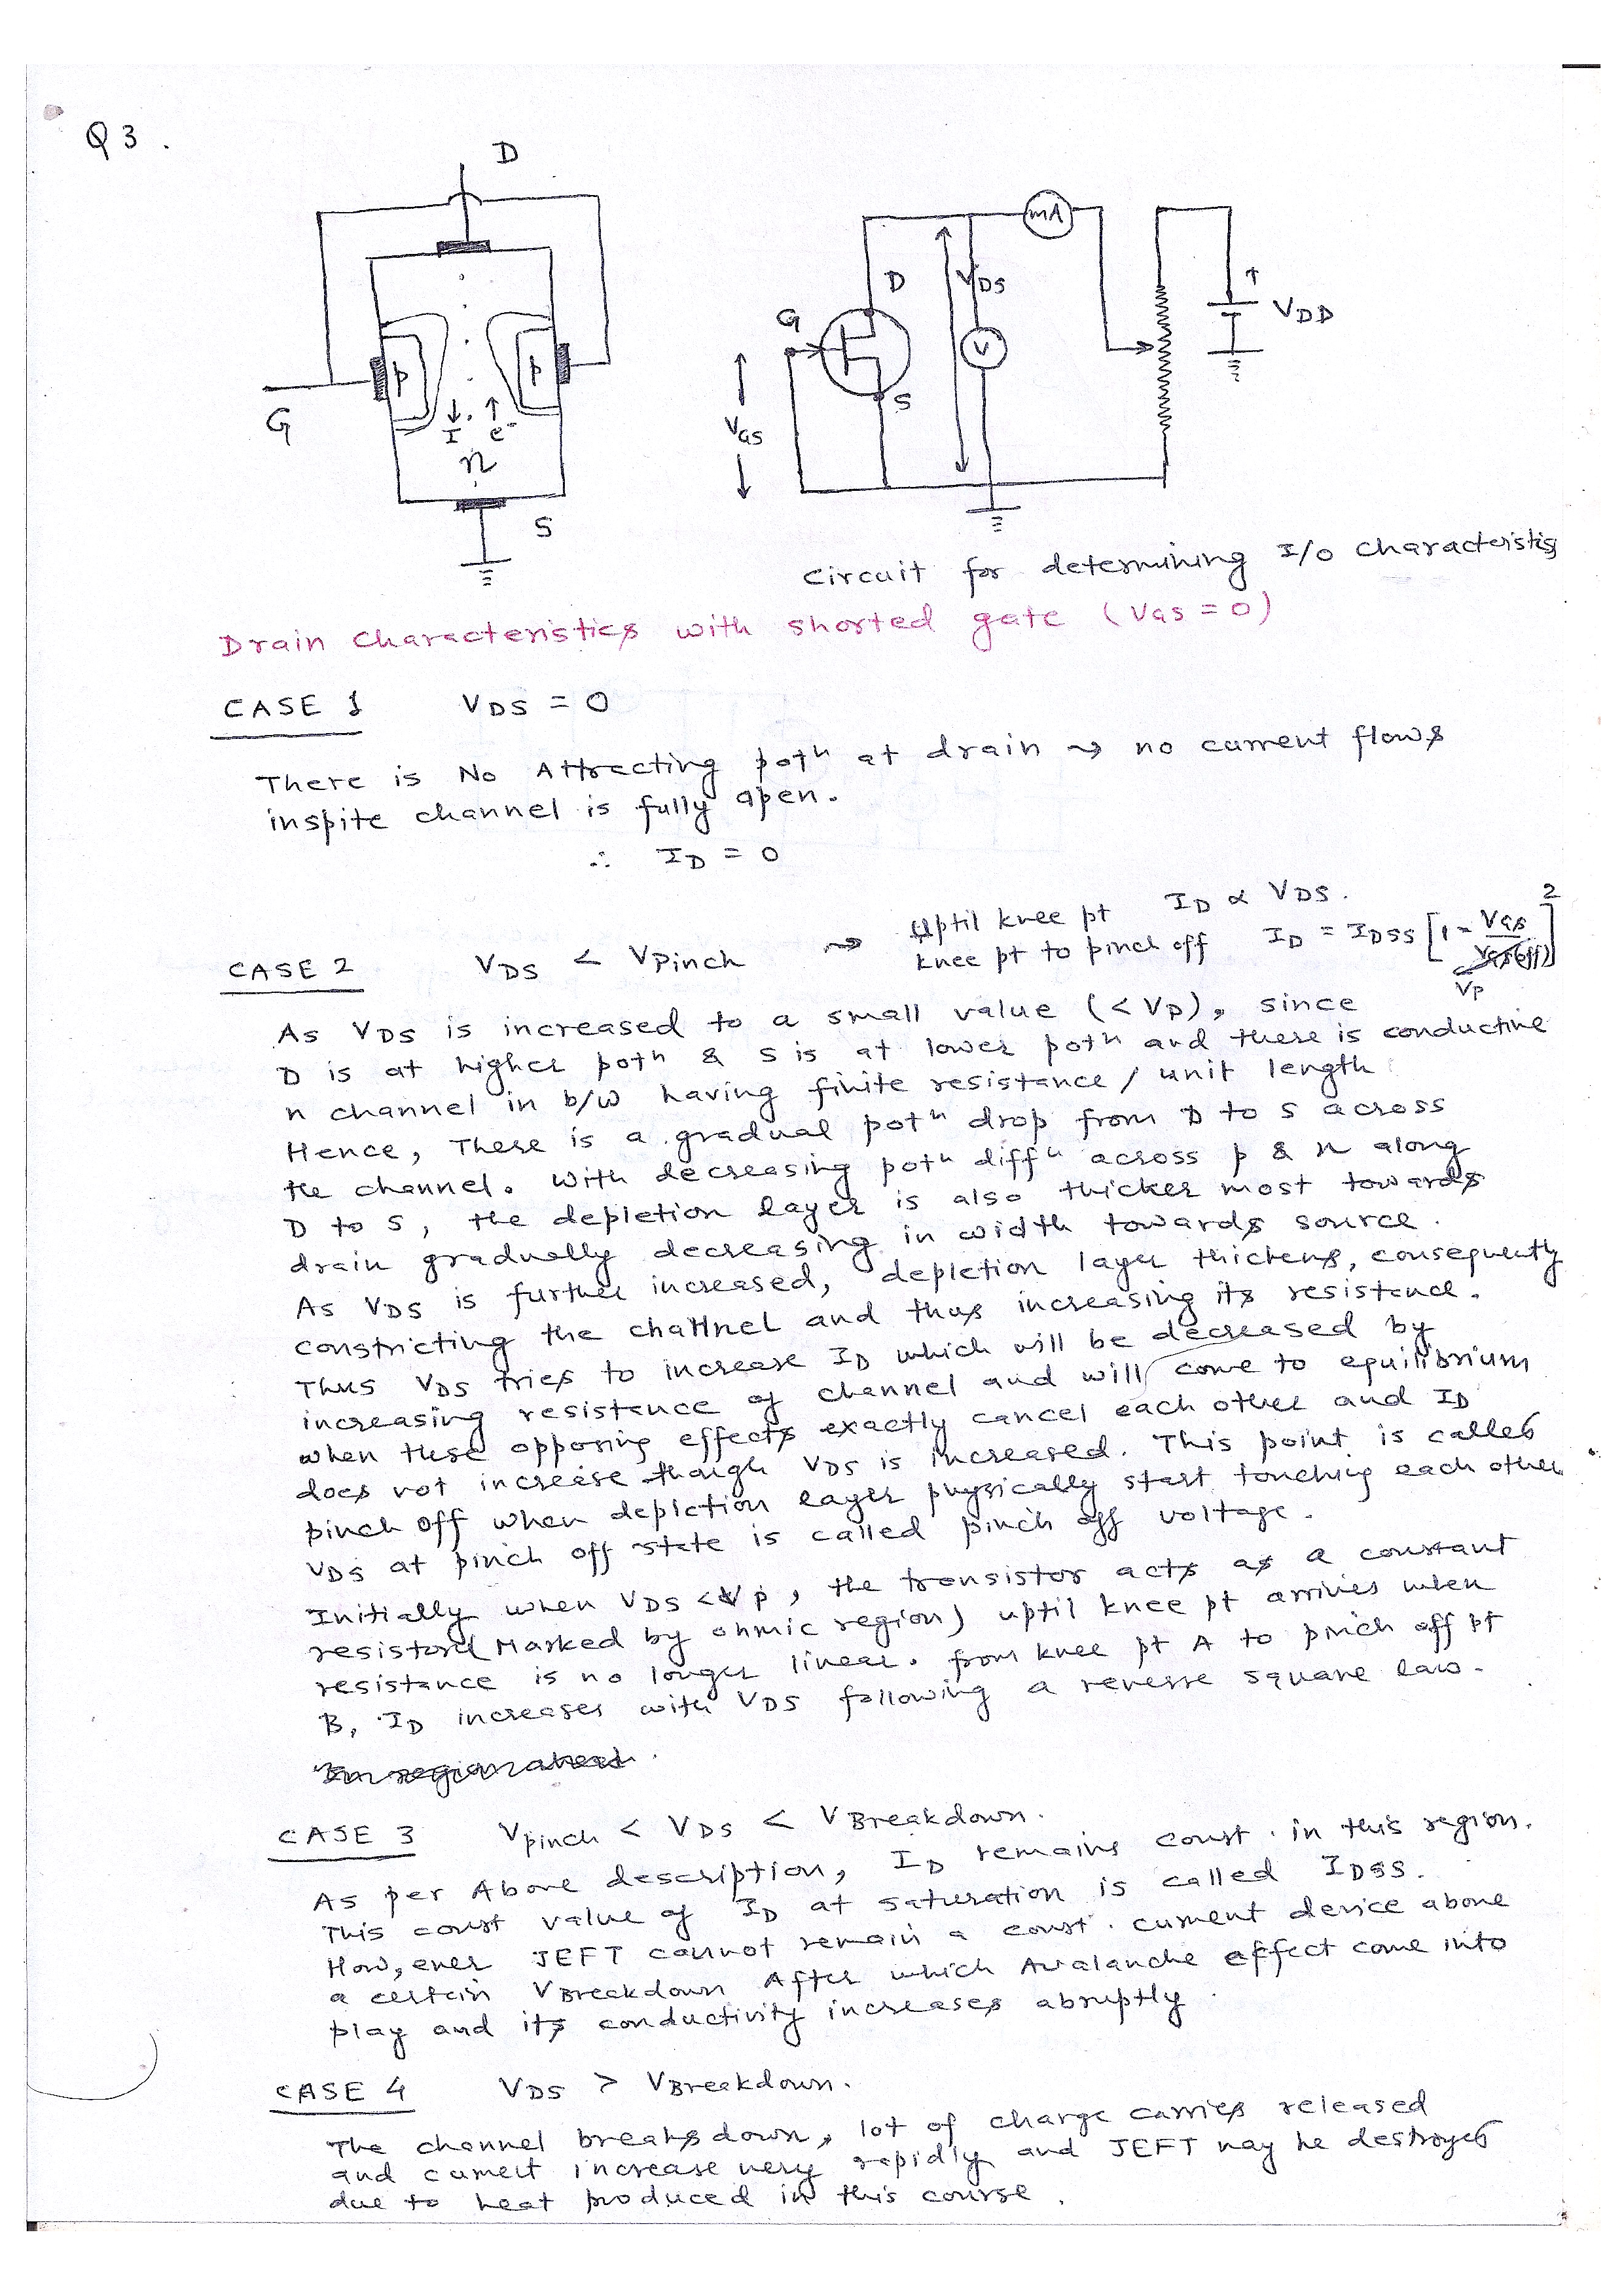 Q3.
D
G
p
p
I
e⁻
n
S
mA
D
VDS
G
V
S
VGS
VDD
Circuit for determining I/O characteristis
Drain characteristics with shorted gate (VGS = 0)
CASE 1 VDS = 0
There is No Attracting potⁿ at drain ⇝ no current flows
inspite channel is fully open.
∴ ID = 0
CASE 2 VDS < VPinch ⇝ Uptil knee pt ID ∝ VDS.
knee pt to pinch off ID = IDSS [1 - VGS/VP]²
As VDS is increased to a small value (< VP), since
D is at higher potⁿ & S is at lower potⁿ and there is conductive
n channel in b/w having finite resistance / unit length.
Hence, There is a gradual potⁿ drop from D to S across
the channel. With decreasing potⁿ diffⁿ across p & n along
D to S, the depletion layer is also thicker most towards
drain gradually decreasing in width towards source.
As VDS is further increased, depletion layer thickens, consequently
constricting the channel and thus increasing its resistance.
Thus VDS tries to increase ID which will be decreased by
increasing resistance of channel and will come to equilibrium
when these opposing effects exactly cancel each other and ID
does not increase though VDS is increased. This point is called
pinch off when depletion layer physically start touching each other
VDS at pinch off state is called pinch off voltage.
Initially when VDS < Vp, the transistor acts as a constant
resistor (Marked by ohmic region) uptil knee pt arrives when
resistance is no longer linear. from knee pt A to pinch off pt
B, ID increases with VDS following a reverse square law.
In region ahead.
CASE 3 Vpinch < VDS < VBreakdown.
As per Above description, ID remains const. in this region.
This const value of ID at saturation is called IDSS.
How,ever JEFT cannot remain a const. current device above
a certain VBreakdown After which Avalanche effect come into
play and its conductivity increases abruptly.
CASE 4 VDS > VBreakdown.
The channel breaks down, lot of charge carries released
and current increase very rapidly and JEFT may be destroyed
due to heat produced in this course.